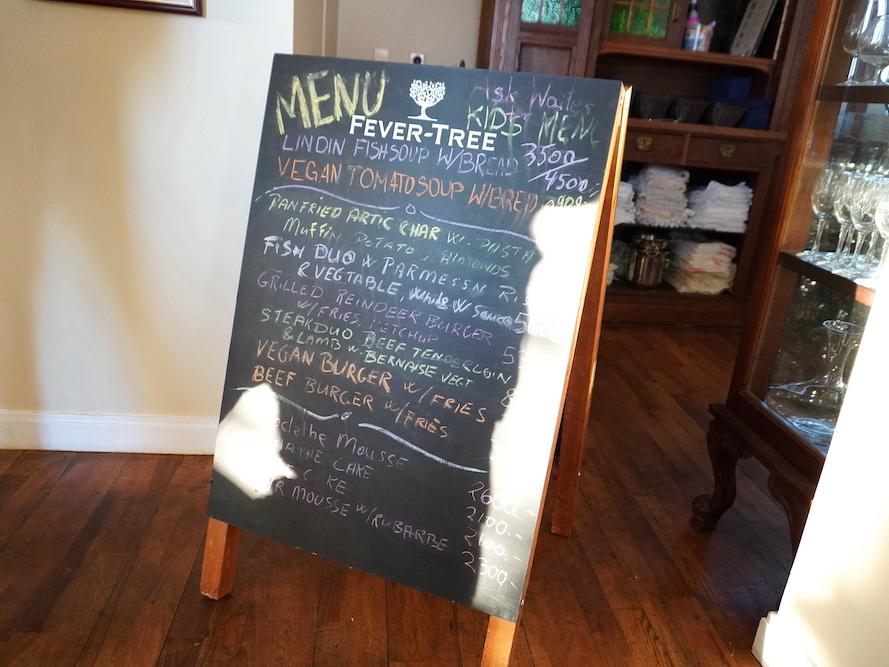 MENU
Ask Waiter
KIDS MENU
FEVER-TREE
LINDIN FISHSOUP W/BREAD 3500/
4500
VEGAN TOMATOSOUP W/BRED
PANFRIED ARTIC CHAR W. PASTA
MUFFIN POTATO, ALMONDS
FISH DUO W PARMESSN
& VEGTABLE, White W Sauce
GRILLED REINDEER BURGER
W/FRIES, KETCHUP
STEAKDUO BEEF TENDERLOIN
& LAMB W. BERNAISE VEGT
VEGAN BURGER W/FRIES
BEEF BURGER W/FRIES
MOUSSE 2600.-
CAKE 2100.-
2100.-
MOUSSE W/RUBARBE 2300.-